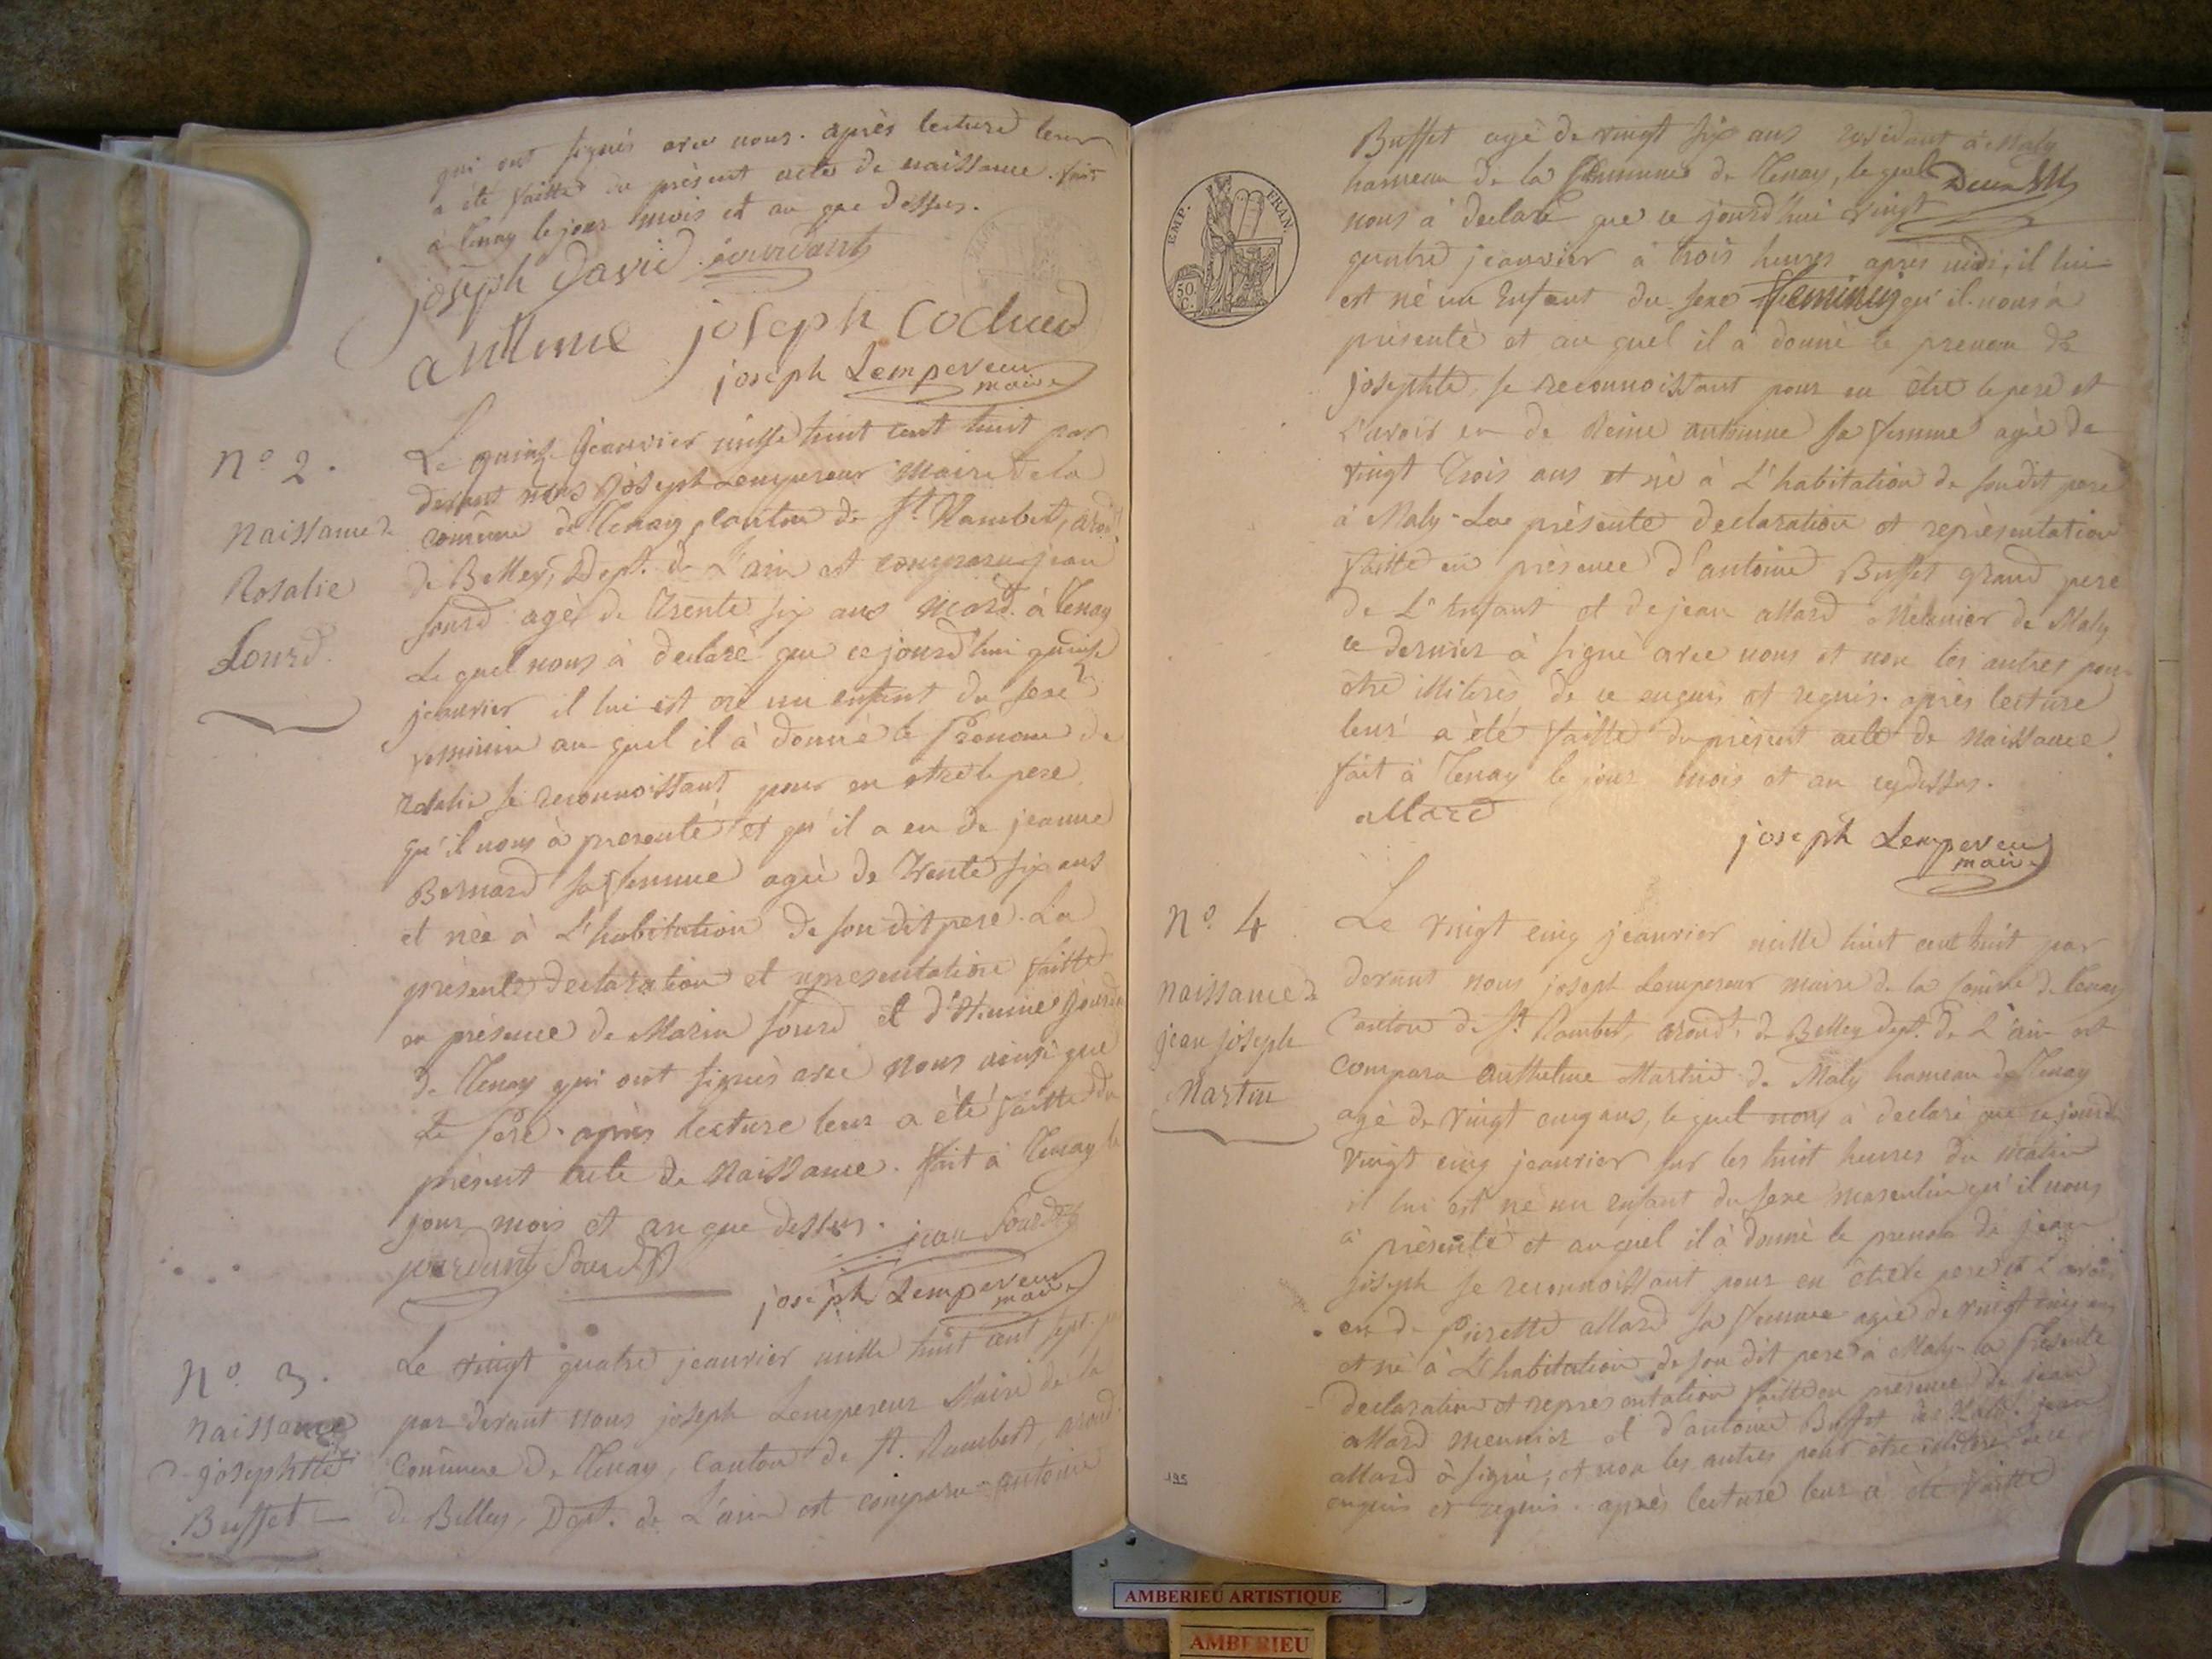 qui ont signés avec nous. après lecture leur
a été faitte du présent acte de naissance. fait
à Tenay le jour mois et an que dessus.
joseph David jourdant
antelme joseph Cochued
joseph Lempereur
maire
N° 2.
Naissance de
Rosalie
Sourd
Le quinze jeanvier mille huit cent huit par
devant nous Joseph Lempereur Maire de la
comûne de Tenay, canton de St. Rambert, arond.t
de Belley, Dépt. de L'ain est comparu jean
sourd agé de Trente six ans à Tenay
Le quel nous à declaré que ce jourd'hui quinze
jeanvier il lui est né un enfant du sexe
feminin au quel il à donné le Prenom de
rosalie se reconnoissant pour en etre le pere
qu'il nous à presenté et qu'il a eu de jeanne
Bernard sa femme agée de Trente six ans
et née à L'habitation de son dit pere. La
présente declaration et representation faitte
en présence de Marin sourd et d'
de Tenay qui ont signés avec nous ainsi que
Le Pere. après lecture leur a été faitte du
présent acte de Naissance. fait à Tenay le
jour mois et an que dessus. jean Sourd
jourdant Sourd
joseph Lempereur
maire
N° 3.
Naissance
de josephtte
Buffet
Le vingt quatre jeanvier mille huit cent sept
par devant nous joseph Lempereur Maire de la
Comûne de Tenay, Canton de St. Rambert, arond.
de Belley, Dept. de L'ain est comparu antoine
Buffet agé de vingt six ans residant à Maly
hameau de la Commune de Tenay, le quel
nous à declaré que ce jourd'hui vingt
quatre jeanvier à trois heures après midi, il lui
EMP. FRAN.
50.
C.
est né un Enfant du sexe feminin qu'il nous à
présenté et au quel il à donné le prenom de
josephte, se reconnoissant pour en être le pere et
L'avoir eu de Reine anthelme sa femme agée de
vingt Trois ans et né à L'habitation de son dit pere
à Maly. La présente declaration et représentation
faitte en présence d'antoine Buffet grand pere
de L'Enfant et de jean allard Meunier de Maly
ce dernier à signé avec nous et non les autres pour
être illiterés de ce enquis et requis. après lecture
leur a été faitte du présent acte de Naissance
fait à Tenay le jour mois et an cydessus.
allard
joseph Lempereur
maire
N° 4
Naissance de
jean joseph
Martin
Le vingt cinq jeanvier mille huit cent huit par
devant nous joseph Lempereur maire de la comûne de Tenay
Canton de St. Rambert arondt. de Belley dept. de L'ain est
comparu Anthelme Martin de Maly hameau de Tenay
agé de vingt cinq ans, le quel nous à declaré que ce jourd
vingt cinq jeanvier sur les huit heures du matin
il lui est né un enfant du sexe masculin qu'il nous
à présenté et au quel il à donné le prenom de jean
joseph se reconnoissant pour en être le pere et L'avoir
eu de Pierette allard sa femme agée de vingt cinq ans
et né à L'habitation de son dit pere à Maly. la présente
declaration et representation faitte en présence de jean
allard meunier et d'antoine Buffet de Maly. jean
allard à signé, et non les autres pour être illiterés de ce
enquis et requis. après lecture leur a été faitte
195
AMBERIEU ARTISTIQUE
AMBERIEU